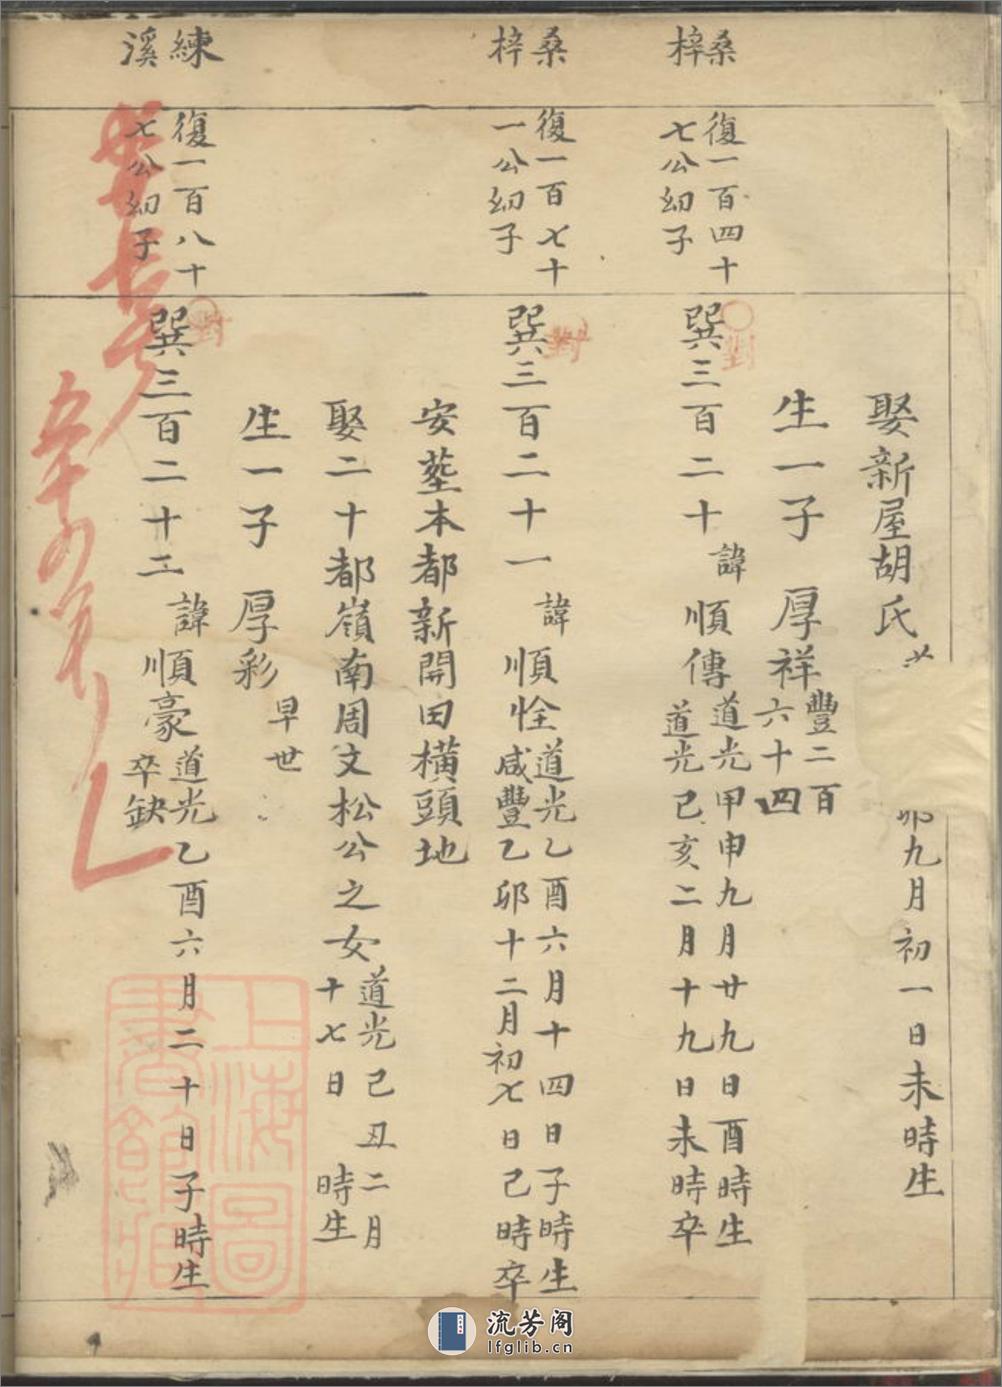 娶新屋胡氏
卯九月初一日未時生
生一子　厚祥豐二百六十四
桑梓
復一百四十七公幼子
巽三百二十諱順傳道光甲申九月廿九日酉時生
道光己亥二月十九日未時卒
對
桑梓
復一百七十一公幼子
巽三百二十一諱順恮道光乙酉六月十四日子時生
咸豐乙卯十二月初七日己時卒
對
安塟本都新開田橫頭地
娶二十都嶺南周文松公之女道光己丑二月十七日　時生
生一子　厚彩早世
練溪
復一百八十七公幼子
巽三百二十二諱順豪道光乙酉六月二十日子時生
卒缺
對
上海圖書館藏
流芳阁
lfglib.cn